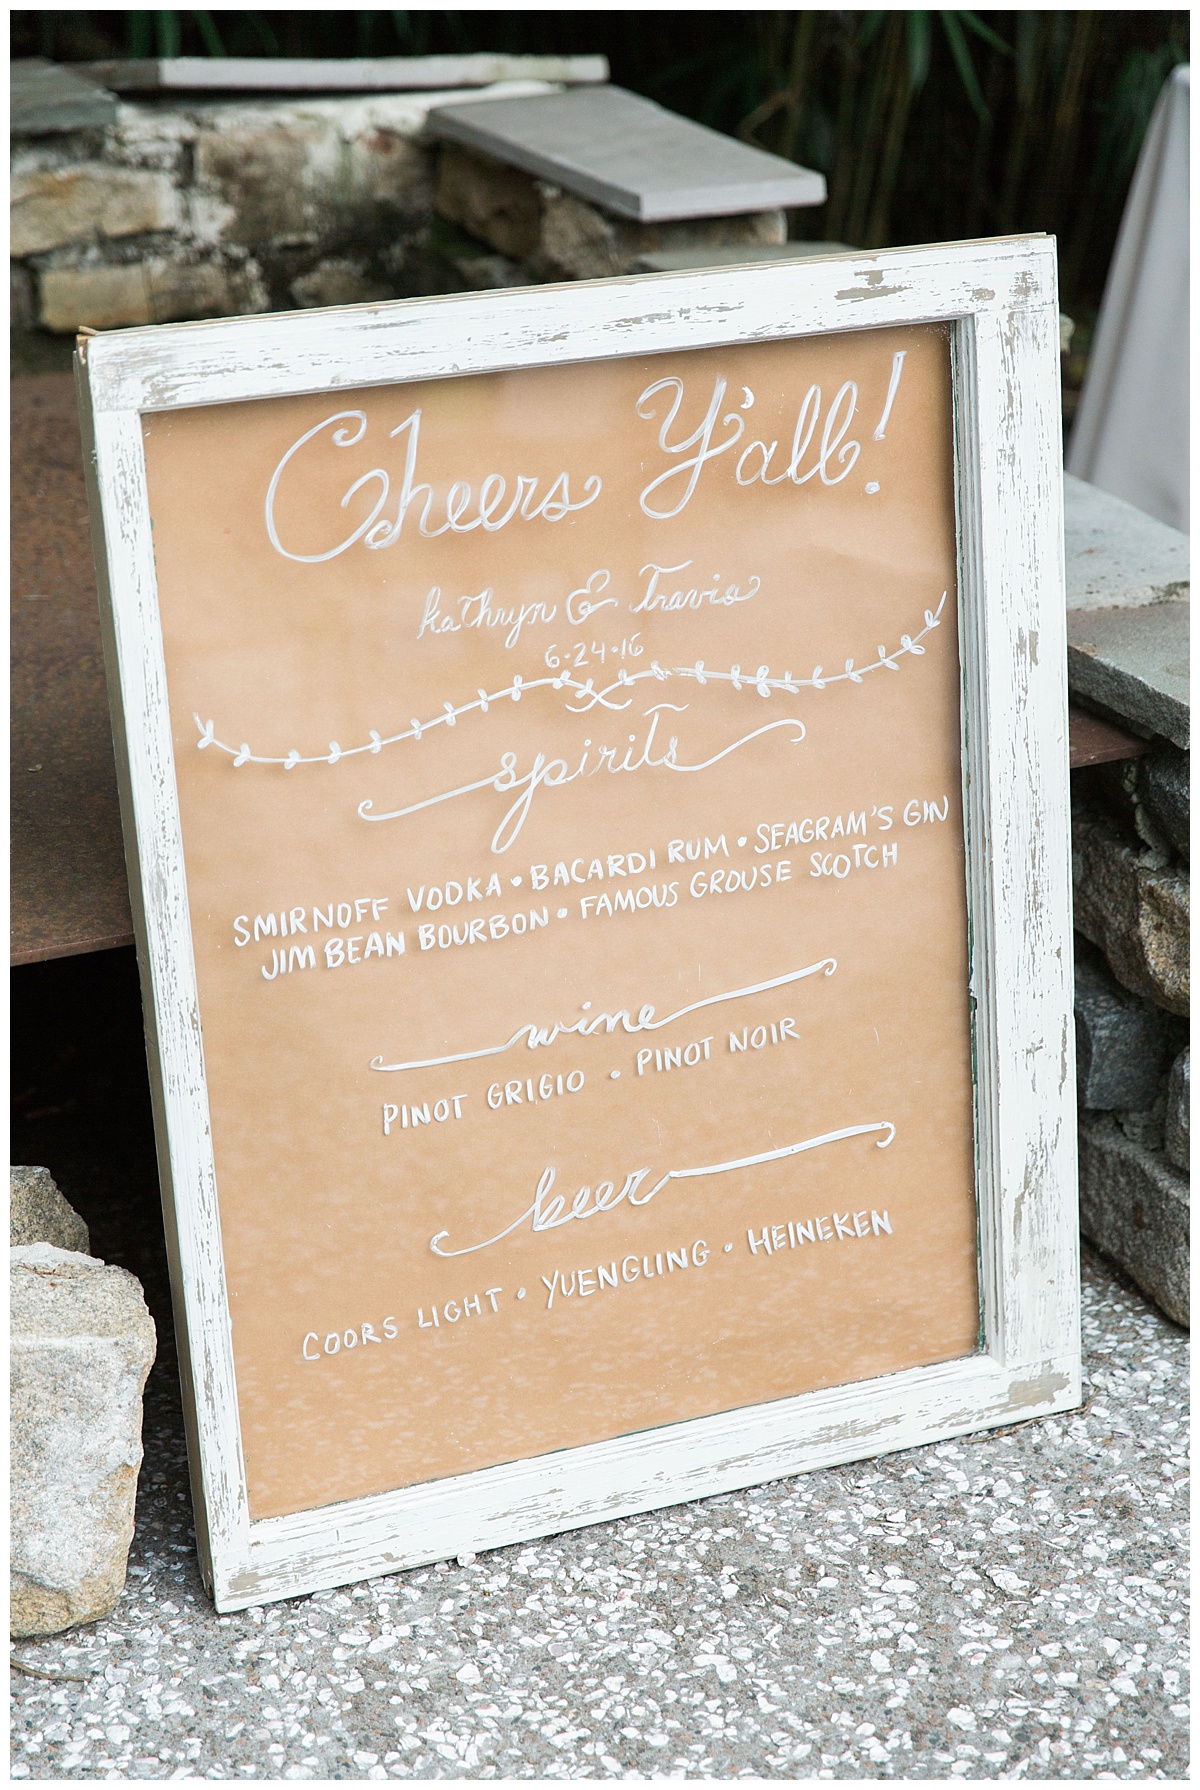 Cheers Y'all!
Kathryn & Travis
6.24.16
spirits
SMIRNOFF VODKA • BACARDI RUM • SEAGRAM'S GIN
JIM BEAN BOURBON • FAMOUS GROUSE SCOTCH
wine
PINOT GRIGIO • PINOT NOIR
beer
COORS LIGHT • YUENGLING • HEINEKEN